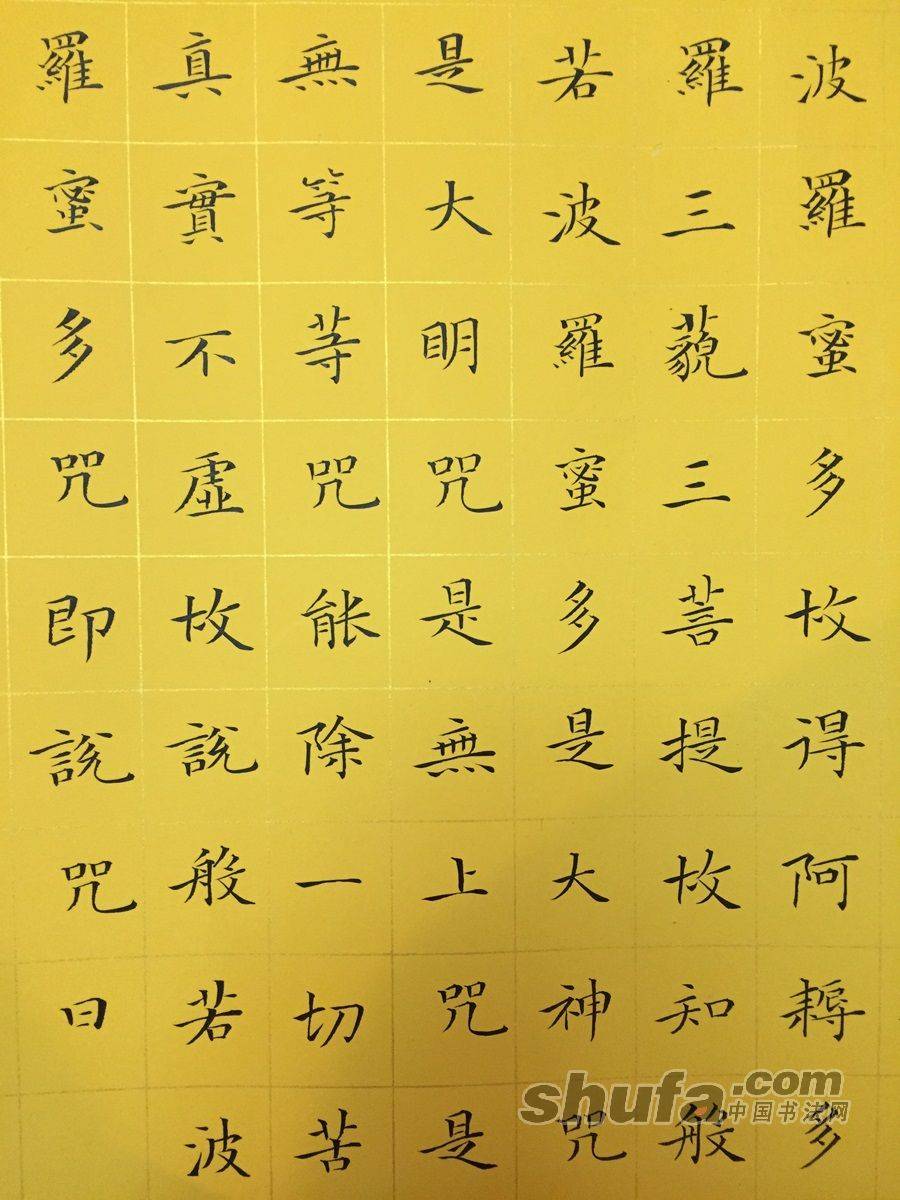 波羅蜜多故得阿耨多
羅三藐三菩提故知般
若波羅蜜多是大神咒
是大明咒是無上咒是
無等等咒能除一切苦
真實不虛故說般若波
羅蜜多咒即說咒曰
shufa.com
中国书法网